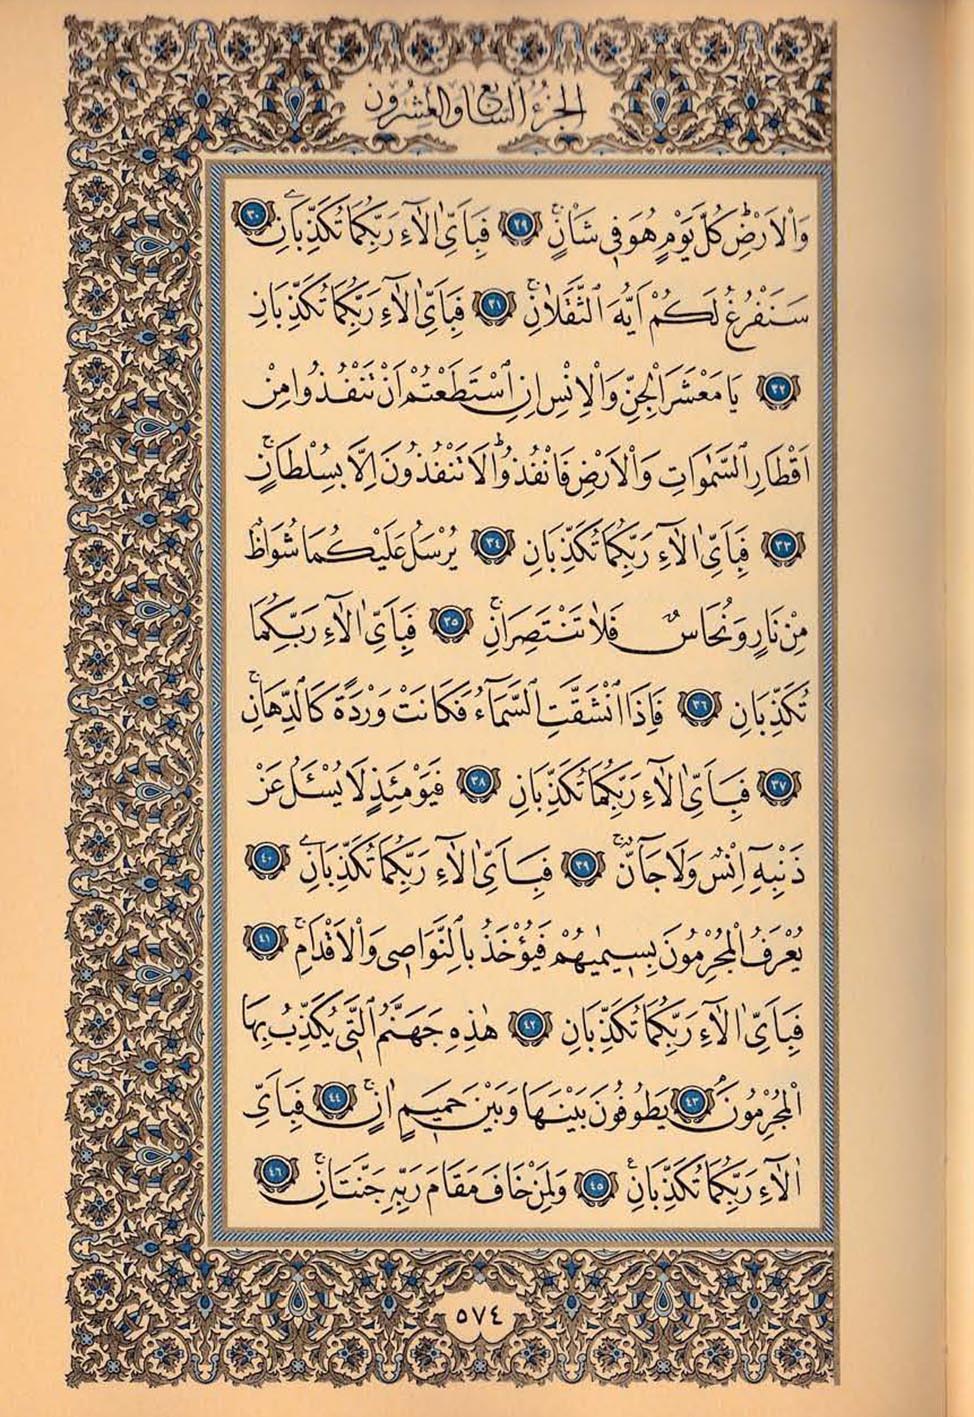 الجزء السابع والعشرون
وَاْلاَرْضِۜ كُلَّ يَوْمٍ هُوَ ف۪ي شَاْنٍۚ ﴿٢٩﴾ فَبِاَيِّ اٰلَٓاءِ رَبِّكُمَا تُكَذِّبَانِۙ ﴿٣٠﴾
سَنَفْرُغُ لَكُمْ اَيُّهَ الثَّقَلَانِۚ ﴿٣١﴾ فَبِاَيِّ اٰلَٓاءِ رَبِّكُمَا تُكَذِّبَانِ
﴿٣٢﴾ يَا مَعْشَرَ الْجِنِّ وَاْلاِنْسِ اِنِ اسْتَطَعْتُمْ اَنْ تَنْفُذُوا مِنْ
اَقْطَارِ السَّمٰوَاتِ وَاْلاَرْضِ فَانْفُذُواۜ لَا تَنْفُذُونَ اِلَّا بِسُلْطَانٍۚ
﴿٣٣﴾ فَبِاَيِّ اٰلَٓاءِ رَبِّكُمَا تُكَذِّبَانِ ﴿٣٤﴾ يُرْسَلُ عَلَيْكُمَا شُوَاظٌ
مِنْ نَارٍ وَنُحَاسٌ فَلَا تَنْتَصِرَانِۚ ﴿٣٥﴾ فَبِاَيِّ اٰلَٓاءِ رَبِّكُمَا
تُكَذِّبَانِ ﴿٣٦﴾ فَاِذَا انْشَقَّتِ السَّمَٓاءُ فَكَانَتْ وَرْدَةً كَالدِّهَانِۚ
﴿٣٧﴾ فَبِاَيِّ اٰلَٓاءِ رَبِّكُمَا تُكَذِّبَانِ ﴿٣٨﴾ فَيَوْمَئِذٍ لَا يُسْـَٔلُ عَنْ
ذَنْبِه۪ٓ اِنْسٌ وَلَا جَٓانٌّۚ ﴿٣٩﴾ فَبِاَيِّ اٰلَٓاءِ رَبِّكُمَا تُكَذِّبَانِۙ ﴿٤٠﴾
يُعْرَفُ الْمُجْرِمُونَ بِس۪يمٰيهُمْ فَيُؤْخَذُ بِالنَّوَاص۪ي وَاْلاَقْدَامِۚ ﴿٤١﴾
فَبِاَيِّ اٰلَٓاءِ رَبِّكُمَا تُكَذِّبَانِ ﴿٤٢﴾ هٰذِه۪ جَهَنَّمُ الَّت۪ي يُكَذِّبُ بِهَا
الْمُجْرِمُونَۢ ﴿٤٣﴾ يَطُوفُونَ بَيْنَهَا وَبَيْنَ حَم۪يمٍ اٰنٍۚ ﴿٤٤﴾ فَبِاَيِّ
اٰلَٓاءِ رَبِّكُمَا تُكَذِّبَانِ۟ ﴿٤٥﴾ وَلِمَنْ خَافَ مَقَامَ رَبِّه۪ جَنَّتَانِۚ ﴿٤٦﴾
٥٧٤